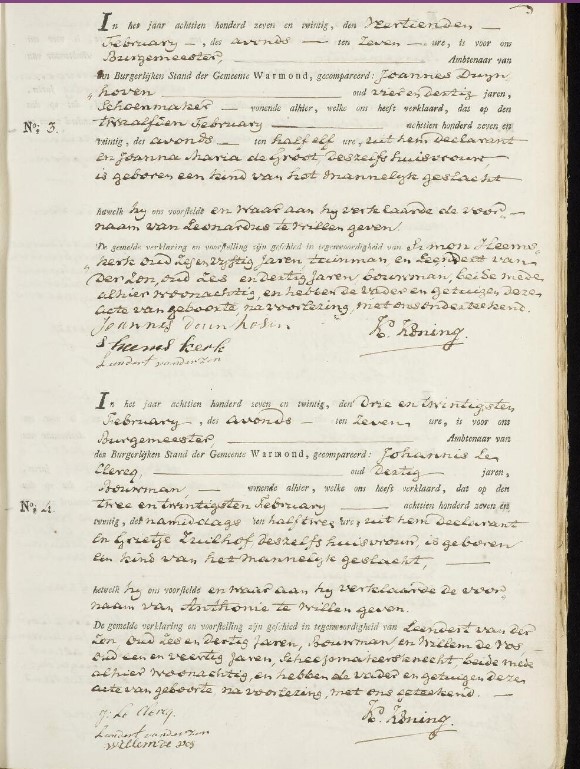 In het jaar achttien honderd zeven en twintig, den Veertienden
February, des avonds ten Zeven ure, is voor ons
Burgemeester, Ambtenaar van
den Burgerlijken Stand der Gemeente Warmond, gecompareerd: Joannes Duyn
hoven oud vier en dertig jaren,
Schoenmaker wonende alhier, welke ons heeft verklaard, dat op den
No. 3. twaalfden February achttien honderd zeven en
twintig, des avonds ten half elf ure, uit hem declarant
en Joanna Maria de Groot, deszelfs huisvrouw
is geboren een kind van het mannelyk geslacht
hetwelk hy ons voorstelde en waar aan hy verklaarde de voor-
naam van Leonardus te willen geven.
De gemelde verklaring en voorstelling zijn geschied in tegenwoordigheid van Simon Heems-
kerk, oud Zes en vyftig Jaren tuinman en Leendert van
Der Zon, oud Zes en dertig Jaren bouwman, beide mede
alhier woonachtig, en hebben de vader en getuigen deze
acte van geboorte, na voorlezing, met ons onderteekend.
Joannis duin hoven
K. Koning.
S heems kerk
Lendert vanderzon
In het jaar achttien honderd zeven en twintig, den Drie en twintigsten
February, des avonds ten Zeven, ure, is voor ons
Burgemeester Ambtenaar van
den Burgerlijken Stand der Gemeente Warmond, gecompareerd: Johannis Le
Clercq, oud dertig jaren,
Bouwman, wonende alhier, welke ons heeft verklaard, dat op den
No. 4. twee en twintigsten February achttien honderd zeven en
twintig, des namiddags ten half twee ure, uit hem declarant
en Grietje Zuilhof deszelfs huisvrouw, is geboren
een kind van het mannelyk geslacht,
hetwelk hy ons voorstelde en waar aan hy verklaarde de voor
naam van Anthonie te willen geven.
De gemelde verklaring en voorstelling zijn geschied in tegenwoordigheid van Leendert van der
Zon, oud Zes en dertig Jaren, Bouwman, en Willem de Vos,
oud een en veertig Jaren, Scheepmakersknecht, beide mede
alhier woonachtig, en hebben de vader en getuigen deze
acte van geboorte, na voorlezing, met ons geteekend.
J: Le Clercq.
K. Koning.
Lendert vanderzon
Willem de vos